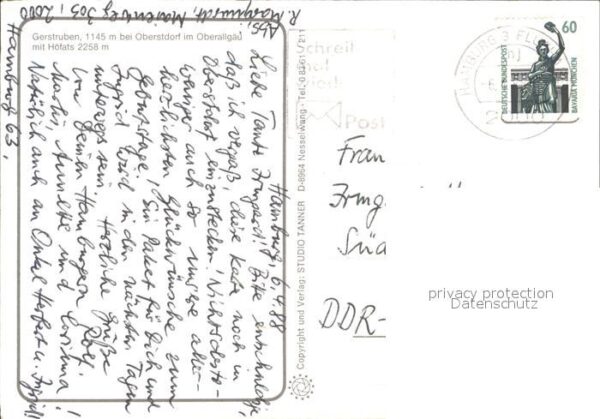 Gerstruben, 1145 m bei Oberstdorf im Oberallgäu
mit Höfats 2258 m
Abs. R. Marquardt, Marienweg 305, 2000
Hamburg 63.
Hamburg 6.4.88
Liebe Tante Irmgard! Bitte entschuldige,
daß ich vergaß, diese Karte noch in
Oberstdorf einzustecken! Nichtsdesto-
weniger auch so unsere aller-
herzlichsten Glückwünsche zum
Geburtstage! Ein Paket für Dich und
Ingrid wird in den nächsten Tagen
unterwegs sein. Herzliche Grüße
von Deinen Hamburgern Rolf,
Annette und Corinna!
Natürlich auch an Onkel u. Ingrid!
Copyright und Verlag: STUDIO TANNER D-8964 Nesselwang · Tel. 08361/1211
Schreib
mal
wieder
Post
HAMBURG
60
DEUTSCHE BUNDESPOST
BAVARIA MÜNCHEN
Frau
Irmg
Süd
DDR-
privacy protection
Datenschutz